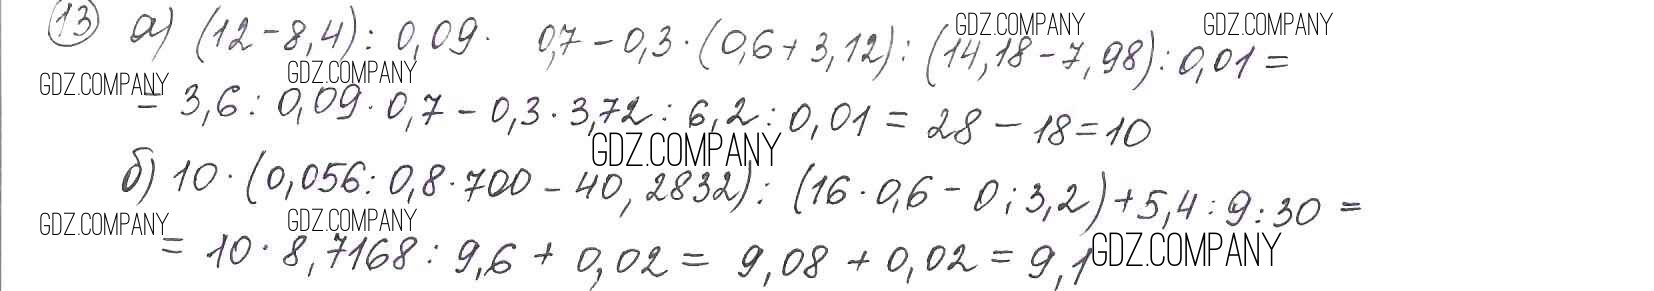 13 а) (12-8,4): 0,09· 0,7-0,3·(0,6+3,12):(14,18-7,98):0,01=
= 3,6: 0,09·0,7-0,3·3,72: 6,2:0,01= 28-18=10
б) 10·(0,056:0,8·700-40,2832): (16·0,6-0:3,2)+5,4:9:30=
= 10·8,7168:9,6+0,02= 9,08+0,02=9,1
GDZ.COMPANY
GDZ.COMPANY
GDZ.COMPANY
GDZ.COMPANY
GDZ.COMPANY
GDZ.COMPANY
GDZ.COMPANY
GDZ.COMPANY